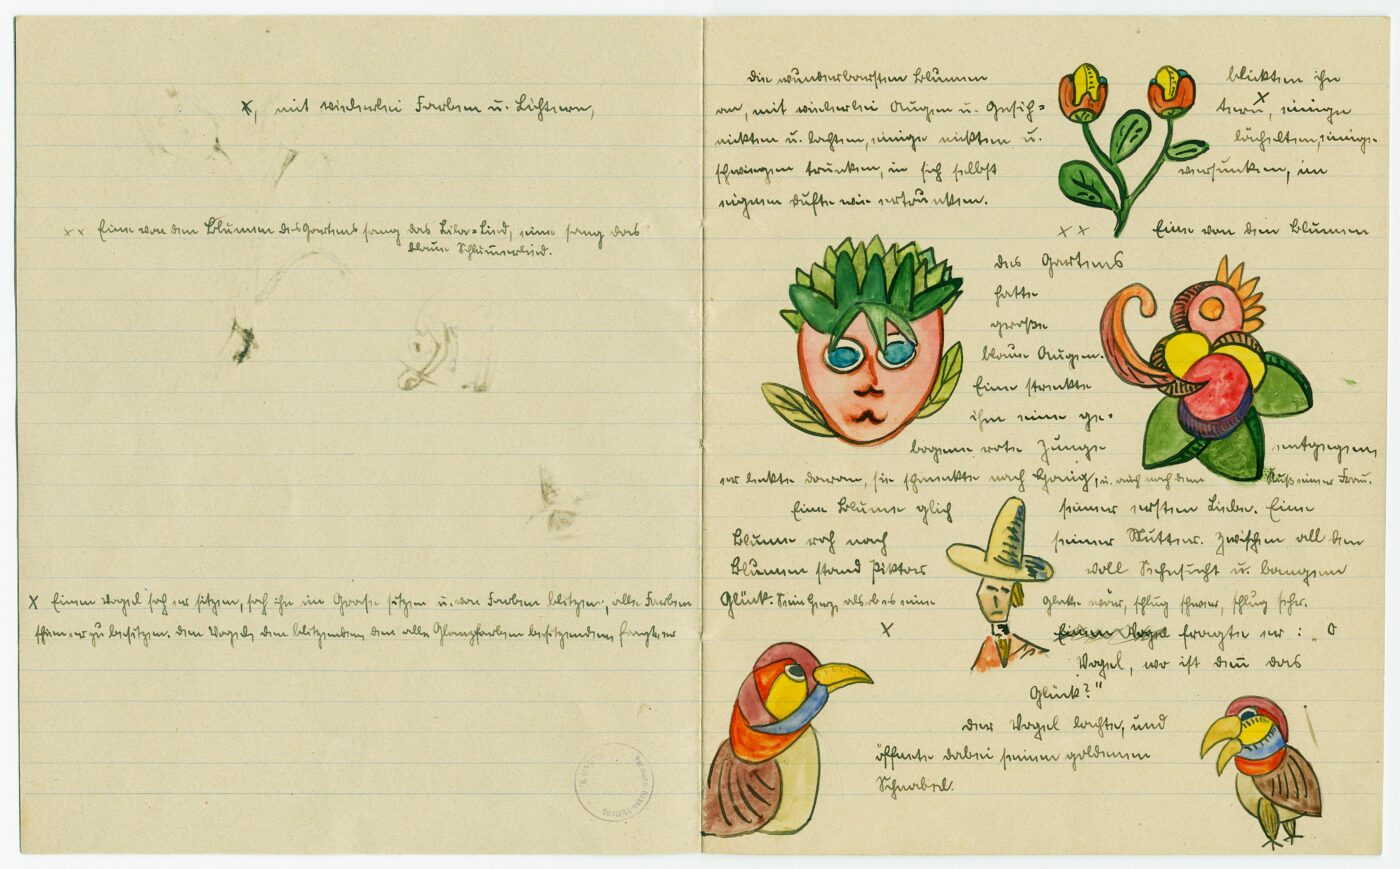 X, mit vielerlei Farben u. Lichtern,
xx Eine von den Blumen des Gartens sang das Lila-Lied, eine sang das
blaue Schlummerlied.
X Einen Vogel sah er sitzen, sah ihn im Grase sitzen u. von Farben blitzen, alle Farben
schien er zu besitzen. Den Vogel, den blitzenden, den alle Glanzfarben besitzenden, fragte er
Die wunderbarsten Blumen blickten ihn
an, mit vielerlei Augen u. Gesich=
tern, X einige
nickten u. lachten, einige nickten u. lächelten, einige
schwiegen trunken, in sich selbst versunken, im
eignen Dufte wie ertrunken.
xx Eine von den Blumen
des Gartens
hatte
große
blaue Augen.
Eine streckte
ihm eine ge=
bogene rote Zunge entgegen,
er leckte daran, sie schmeckte nach Honig, u. auch nach dem Kuß einer Frau.
Eine Blume glich seiner ersten Liebe. Eine
Blume roch nach seiner Mutter. Zwischen all den
Blumen stand Piktor voll Sehnsucht u. bangem
Glück. Sein Herz, als ob es eine Glocke wär, schlug schwer, schlug sehr.
X Einen Vogel fragte er: „O
Vogel, wo ist denn das
Glück?"
Der Vogel lachte, und
öffnete dabei seinen goldenen
Schnabel.
Hermann-Hesse-Stiftung